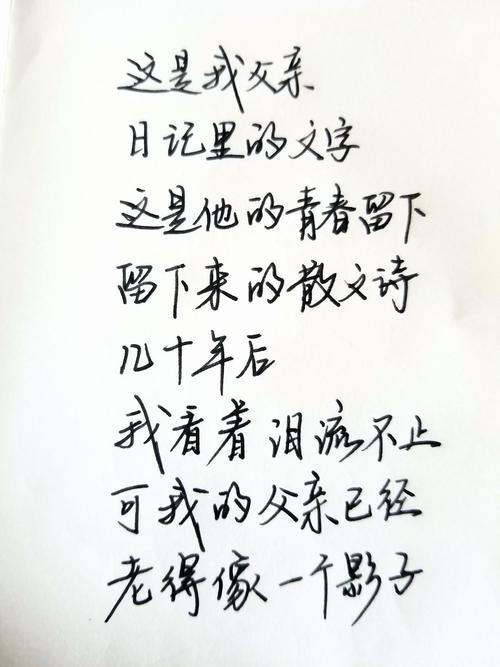 这是我父亲
日记里的文字
这是他的青春留下
留下来的散文诗
几十年后
我看着泪流不止
可我的父亲已经
老得像一个影子